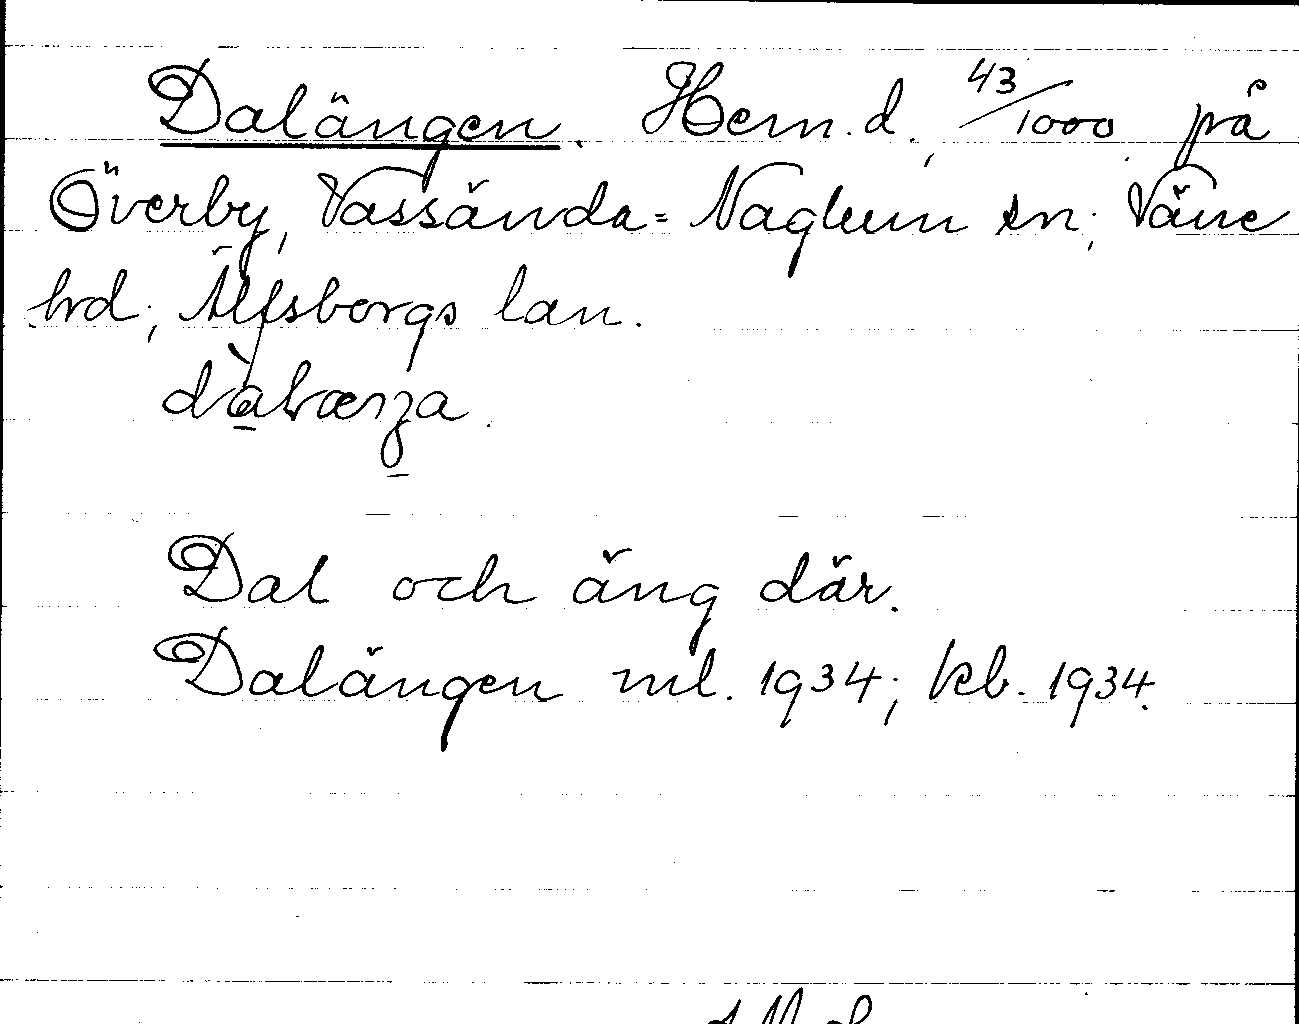 Dalängen. Hem.d., 43/1000 på
Överby, Vassända-Naglum sn, Väne
hrd, Älfsborgs län.
Dal och äng där.
Dalängen ml. 1934; kb. 1934.